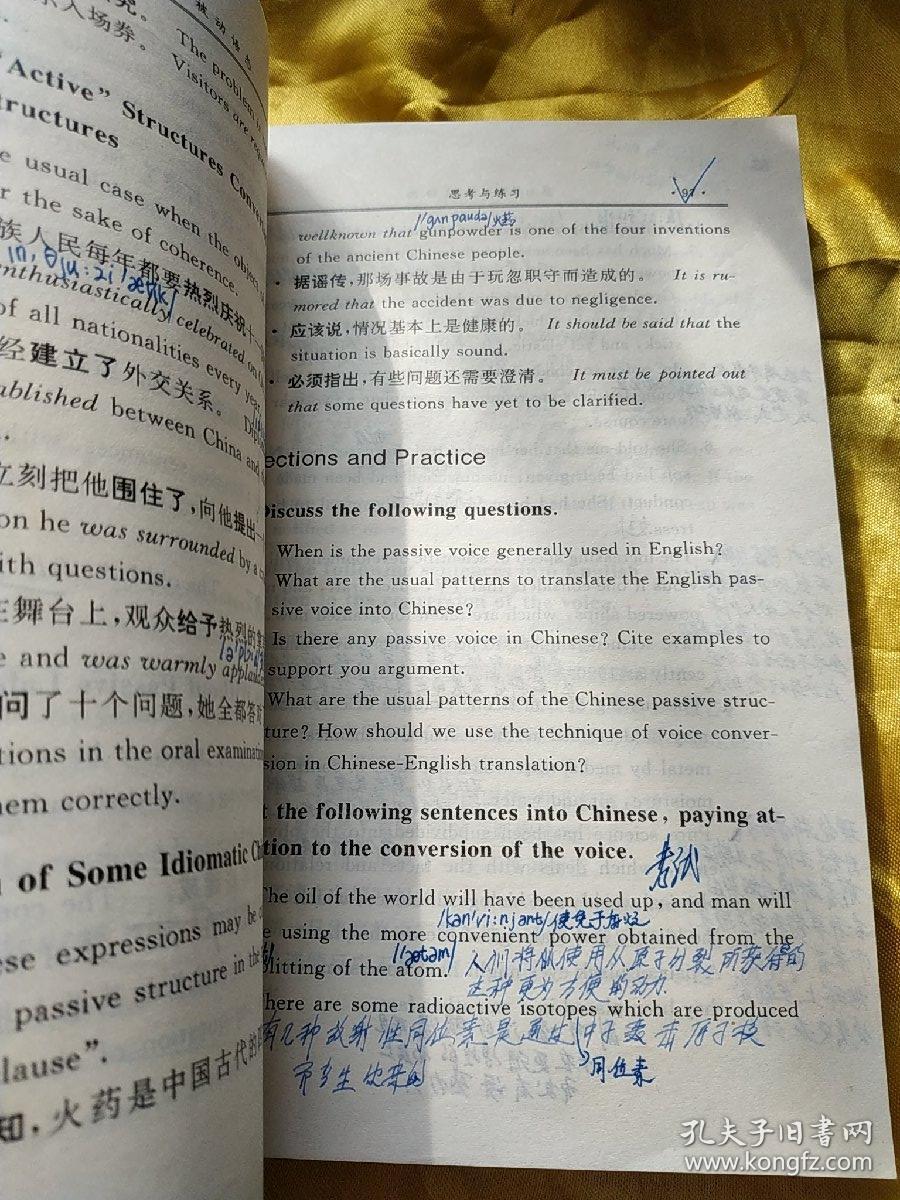 被动语态
究。 The problem is
示入场券。 Visitors are
"Active" Structures
tructures
e usual case when the object
r the sake of coherence.
族人民每年都要热烈庆祝十一
enthusiastically celebrated on
of all nationalities every year.
经建立了外交关系。
ablished between China and
立刻把他围住了，向他提出一
on he was surrounded by a
ith questions.
舞台上，观众给予热烈的
e and was warmly
问了十个问题，她全都答对
tions in the oral examination
hem correctly.
of Some Idiomatic
ese expressions may be
passive structure in the
lause".
知，火药是中国古代的
思考与练习
·97·
火药
wellknown that gunpowder is one of the four inventions
of the ancient Chinese people.
· 据谣传，那场事故是由于玩忽职守而造成的。 It is ru-
mored that the accident was due to negligence.
· 应该说，情况基本上是健康的。 It should be said that the
situation is basically sound.
· 必须指出，有些问题还需要澄清。 It must be pointed out
that some questions have yet to be clarified.
ections and Practice
Discuss the following questions.
When is the passive voice generally used in English?
What are the usual patterns to translate the English pas-
sive voice into Chinese?
Is there any passive voice in Chinese? Cite examples to
support you argument.
What are the usual patterns of the Chinese passive struc-
ture? How should we use the technique of voice conver-
sion in Chinese-English translation?
t the following sentences into Chinese, paying at-
tion to the conversion of the voice.
考试
The oil of the world will have been used up, and man will
e using the more convenient power obtained from the
plitting of the atom.
人们将使用从原子分裂所获得的
更为方便的动力
here are some radioactive isotopes which are produced
有几种放射性同位素是通过中子轰击原子核
产生
同位素
孔夫子旧书网
www.kongfz.com